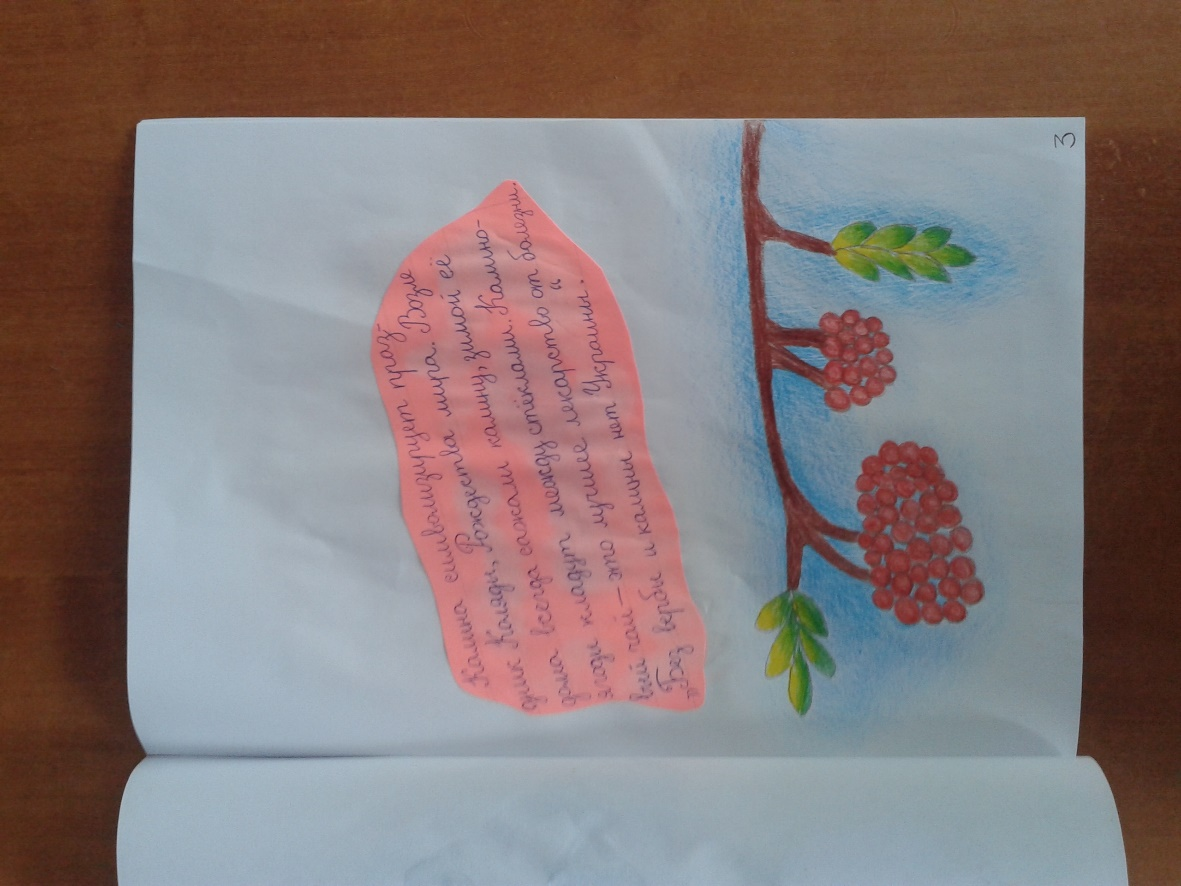 Калина символизирует праз-
дник Коляди, Рождества мира. Возле
дома всегда сажали калину, зимой её
ягоди кладут между стёклами. Калино-
вый чай – это лучшее лекарство от болезни.
"Без верби и калини нет Украини."
3